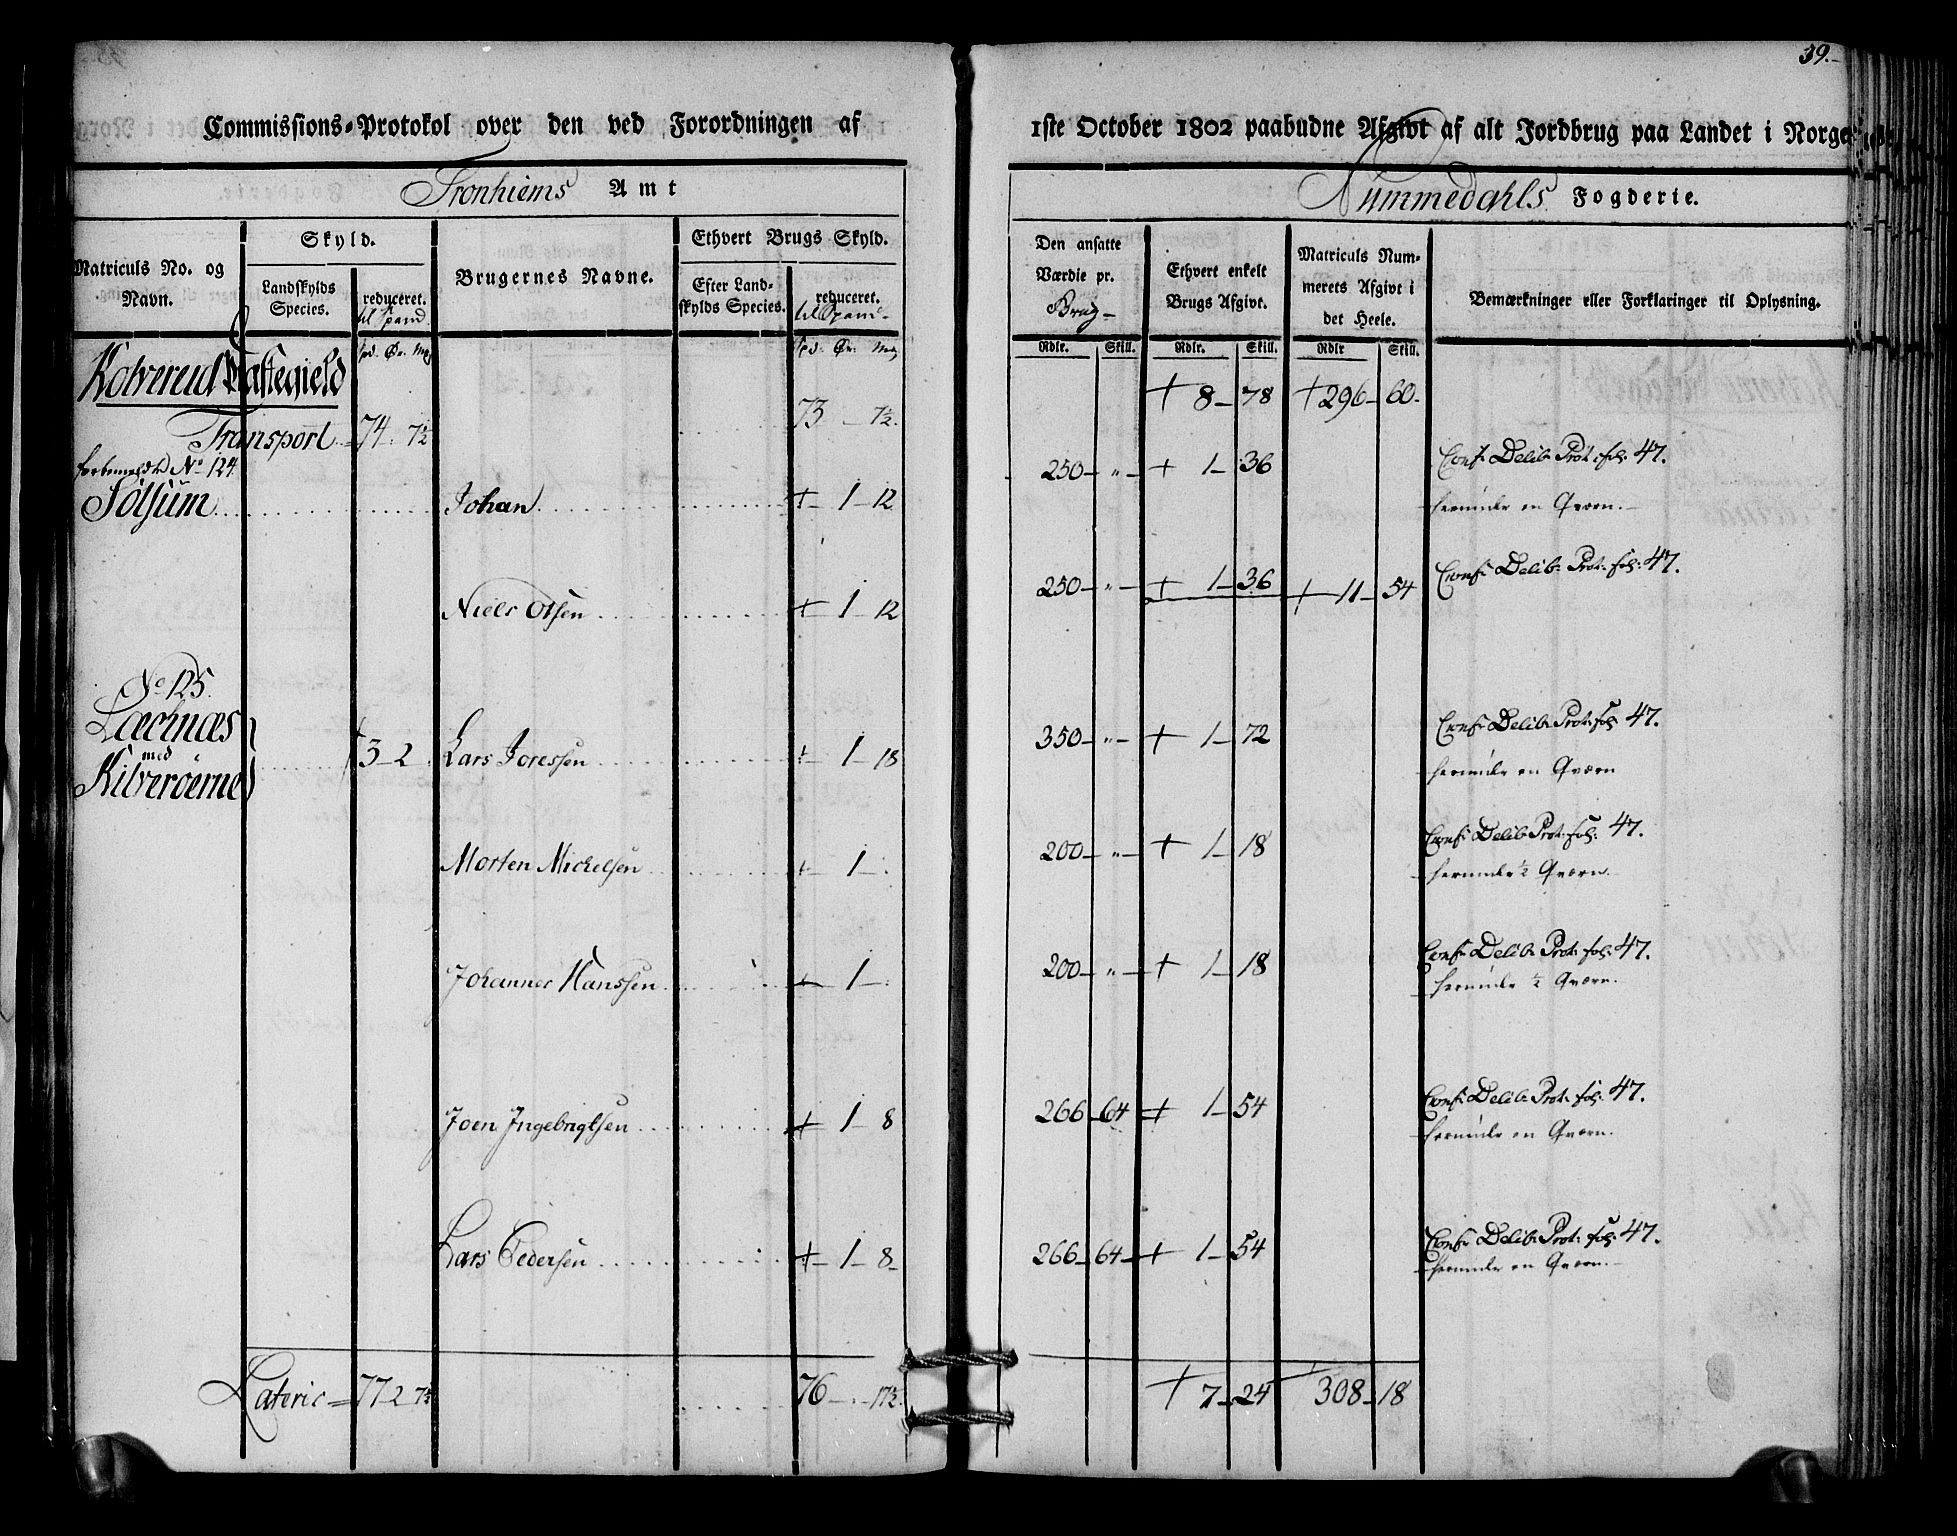 39.
Commissions-Protokol over den ved Forordningen af 1ste October 1802 paabudne Afgivt af alt Jordbrug paa Landet i Norge
Tronhiems Amt
Nummedahls Fogderie.
Matriculs No. og Navn.
Skyld.
Landskylds Species.
reduceret. til Spand.
Brugernes Navne.
Ethvert Brugs Skyld.
Efter Landskylds Species.
reduceret. til Spand.
Den ansatte Værdie pr. Brug
Ethvert enkelt Brugs Afgivt.
Matriculs Nummerets Afgivt i det Heele.
Bemærkninger eller Forklaringer til Oplysning.
Rdlr. Skill. Rdlr. Skill. Rdlr Skill.
Kolvereid Præstegield
Transport 74 . 7½ 73 — 7½. + 8 — 78 + 296 — 60.
No 124
Solsum Johan + 1 — 12 250 — „ — + 1 — 36 Conf. Delib. Prot: fol: 47.
herunder en Qværn.
Niels Olsen + 1 — 12 250 — „ — + 1 — 36 + 11 — 54 Conf. Delib. Prot: fol: 47.
No 125.
Lecknæs
med
Kilverøerne 3 — 2 Lars Joressen + 1 — 18 350 — „ — + 1 — 72 Conf. Delib. Prot: fol: 47.
herunder en Qværn
Morten Michelsen + 1 — . 200 — „ — + 1 — 18 Conf. Delib. Prot: fol: 47.
herunder ½ Qværn.
Johannes Hanssen + 1 — . 200 — „ — + 1 — 18 Conf. Delib. Prot: fol: 47.
herunder ½ Qværn.
Joen Ingebrigtsen + 1 — 8 266 — 64 + 1 — 54 Conf. Delib. Prot: fol: 47.
herunder en Qværn.
Lars Pedersen + 1 — 8 266 — 64 — + 1 — 54 Conf. Delib. Prot: fol: 47.
herunder en Qværn.
Lateris = 77 — 2 7½ 76 — . — 17½ + 7 — 24 308 — 18